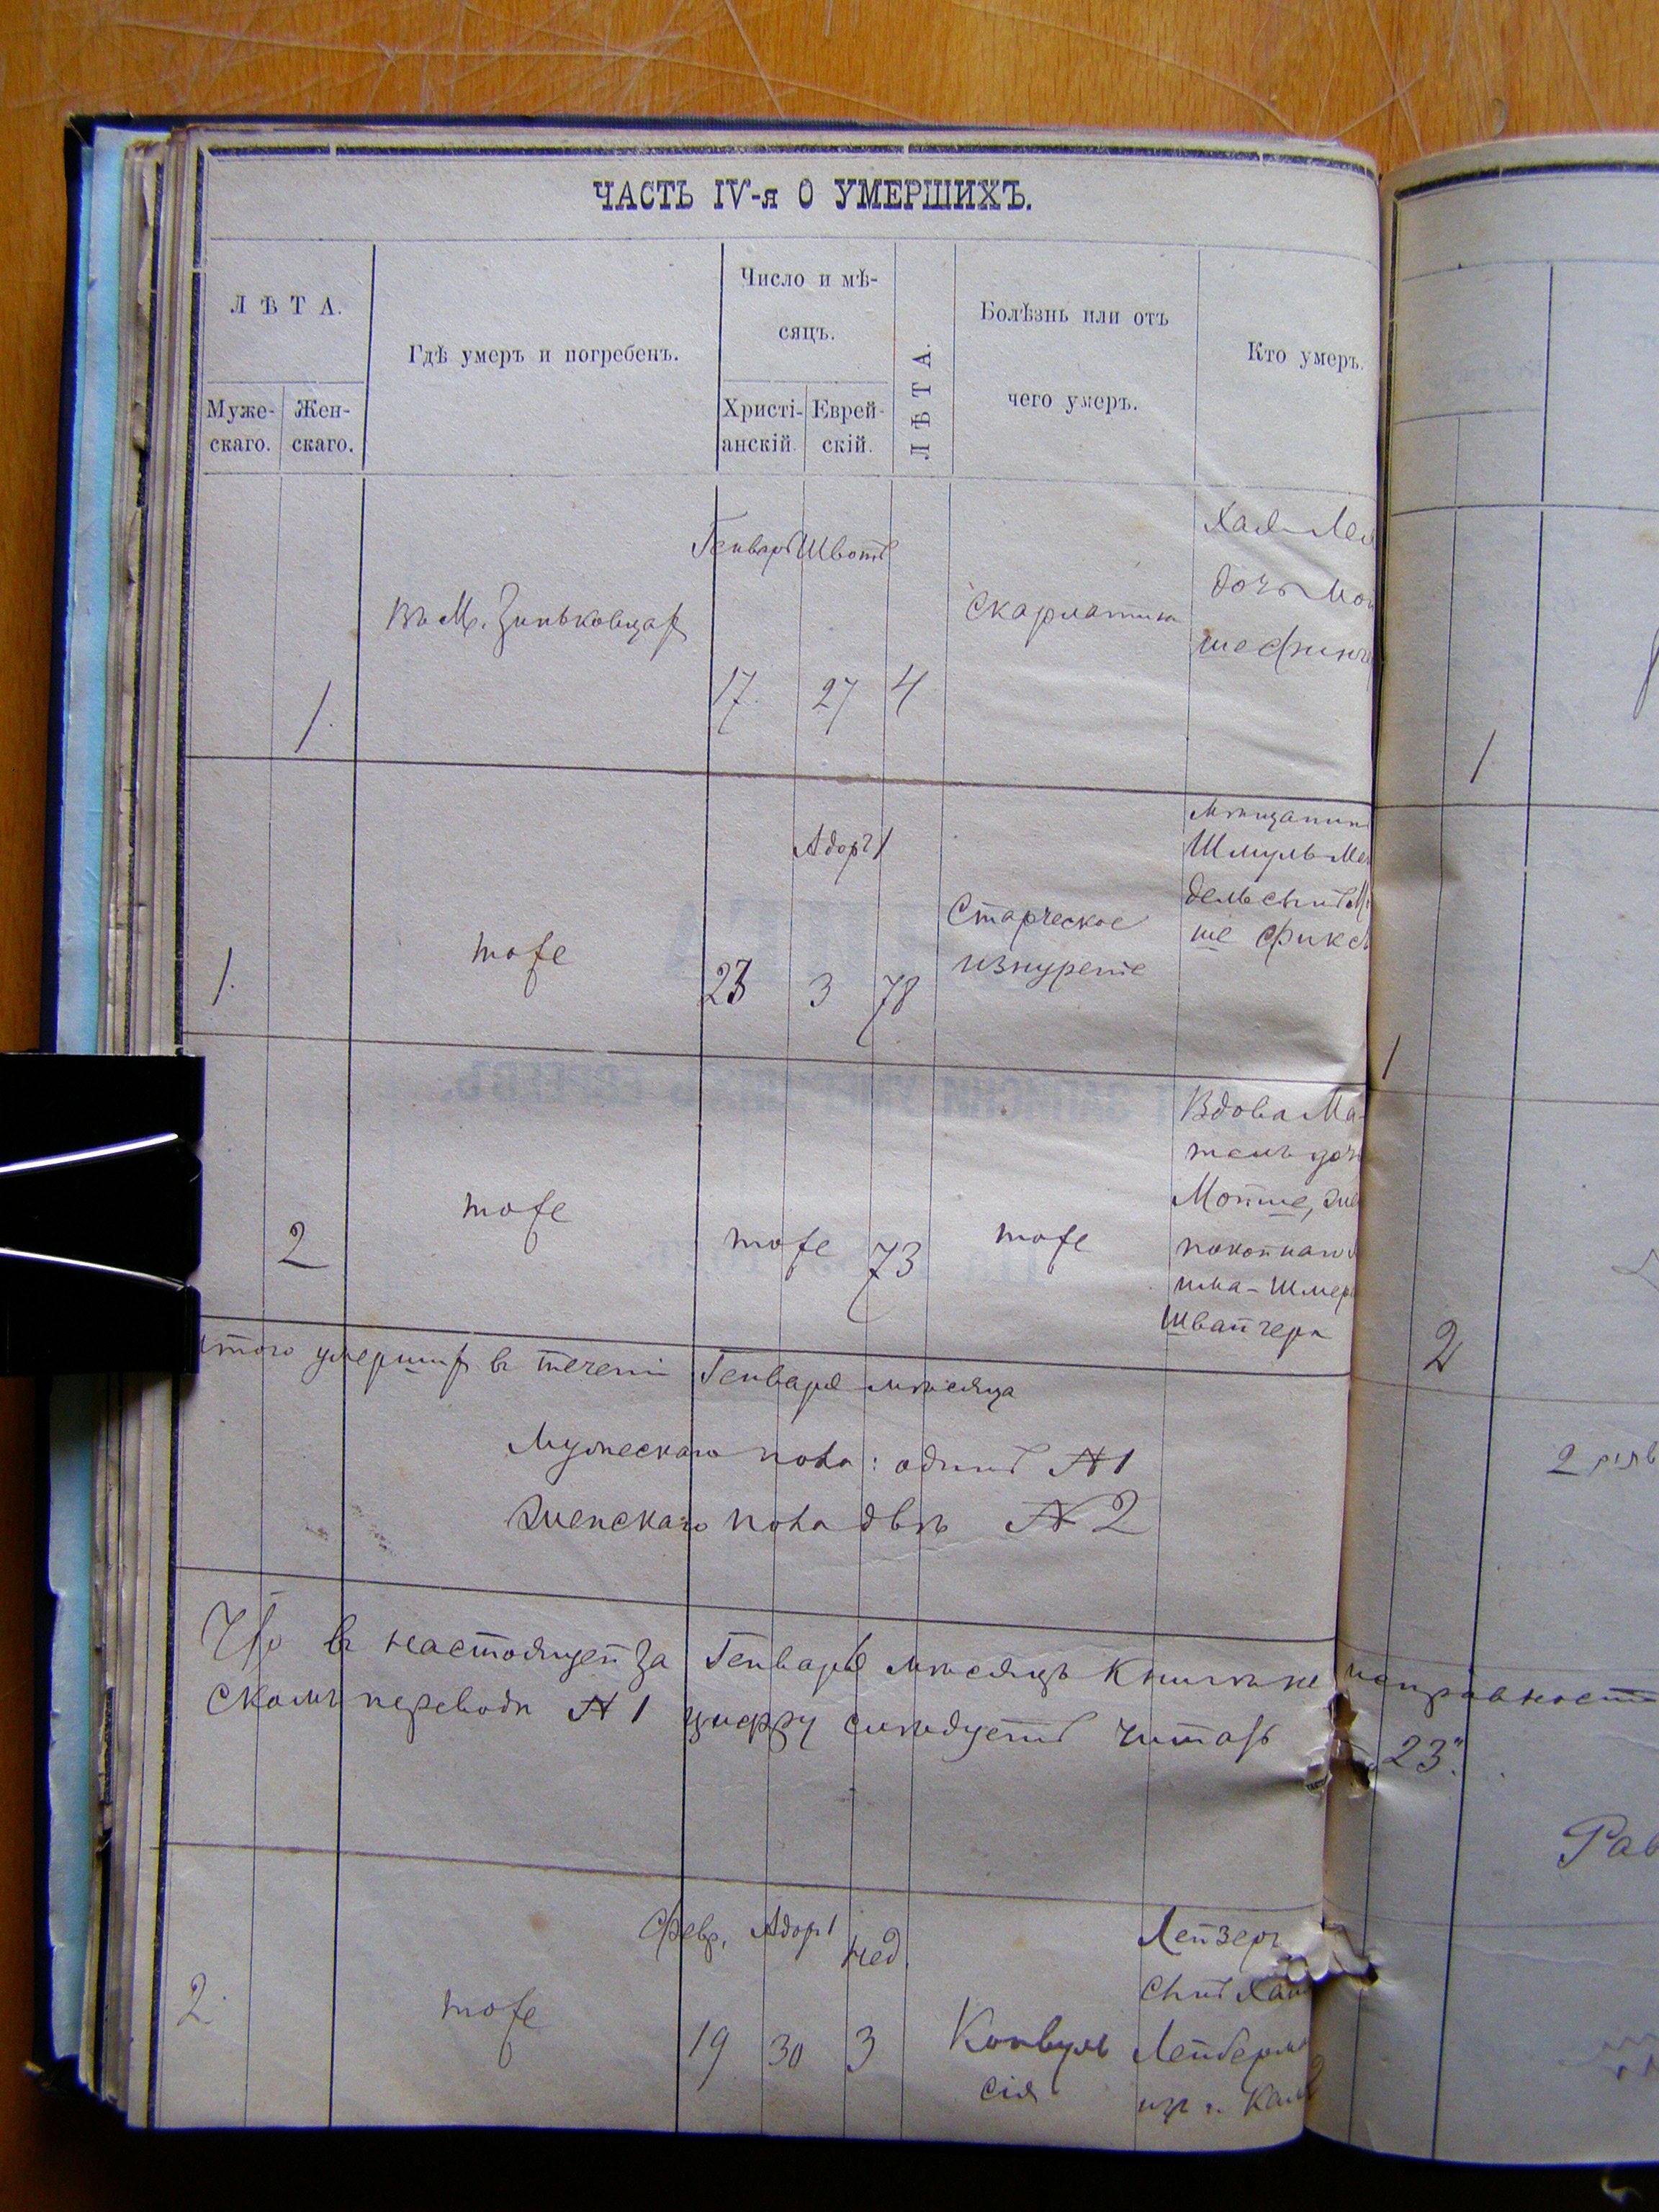 ЧАСТЬ IV-я О УМЕРШИХЪ.
ЛѢТА.
Муже-
скаго.
Жен-
скаго.
Гдѣ умеръ и погребенъ.
Число и мѣ-
сяцъ.
Христі-
анскій.
Еврей-
скій.
ЛѢТА.
Болѣзнь или отъ
чего умеръ.
Кто умеръ.
1.
Въ М. Зиньковцах
Генварь
17.
Швотъ
27
4
Скарлатина
Хая-Лея
дочь Мош
ше
1
1.
тоже
23
Адоръ 1
3
78
Старческое
изнуреніе
Мѣщанинъ
Шмуль-Мен
дель сынъ
ше Фикс
1
2
тоже
тоже
73
тоже
Вдова Ма-
дочь
Мотше, же
покойнаго
Шмер
Швайчера
2
Итого умершихъ въ теченіи Генваря мѣсяца
Мужескаго пола: одинъ № 1
Женскаго пола двѣ № 2
Что въ настоящей за Генварь мѣсяцъ книжкѣ исправности
скомъ переводѣ № 1 цифру слѣдуетъ читать "23".
Рав
2.
тоже
Февр.
19
Адоръ 1
30
нед.
3
Конвуль
сія
Лейзеръ
сынъ Хаи
Лейберма
изъ г. Кам